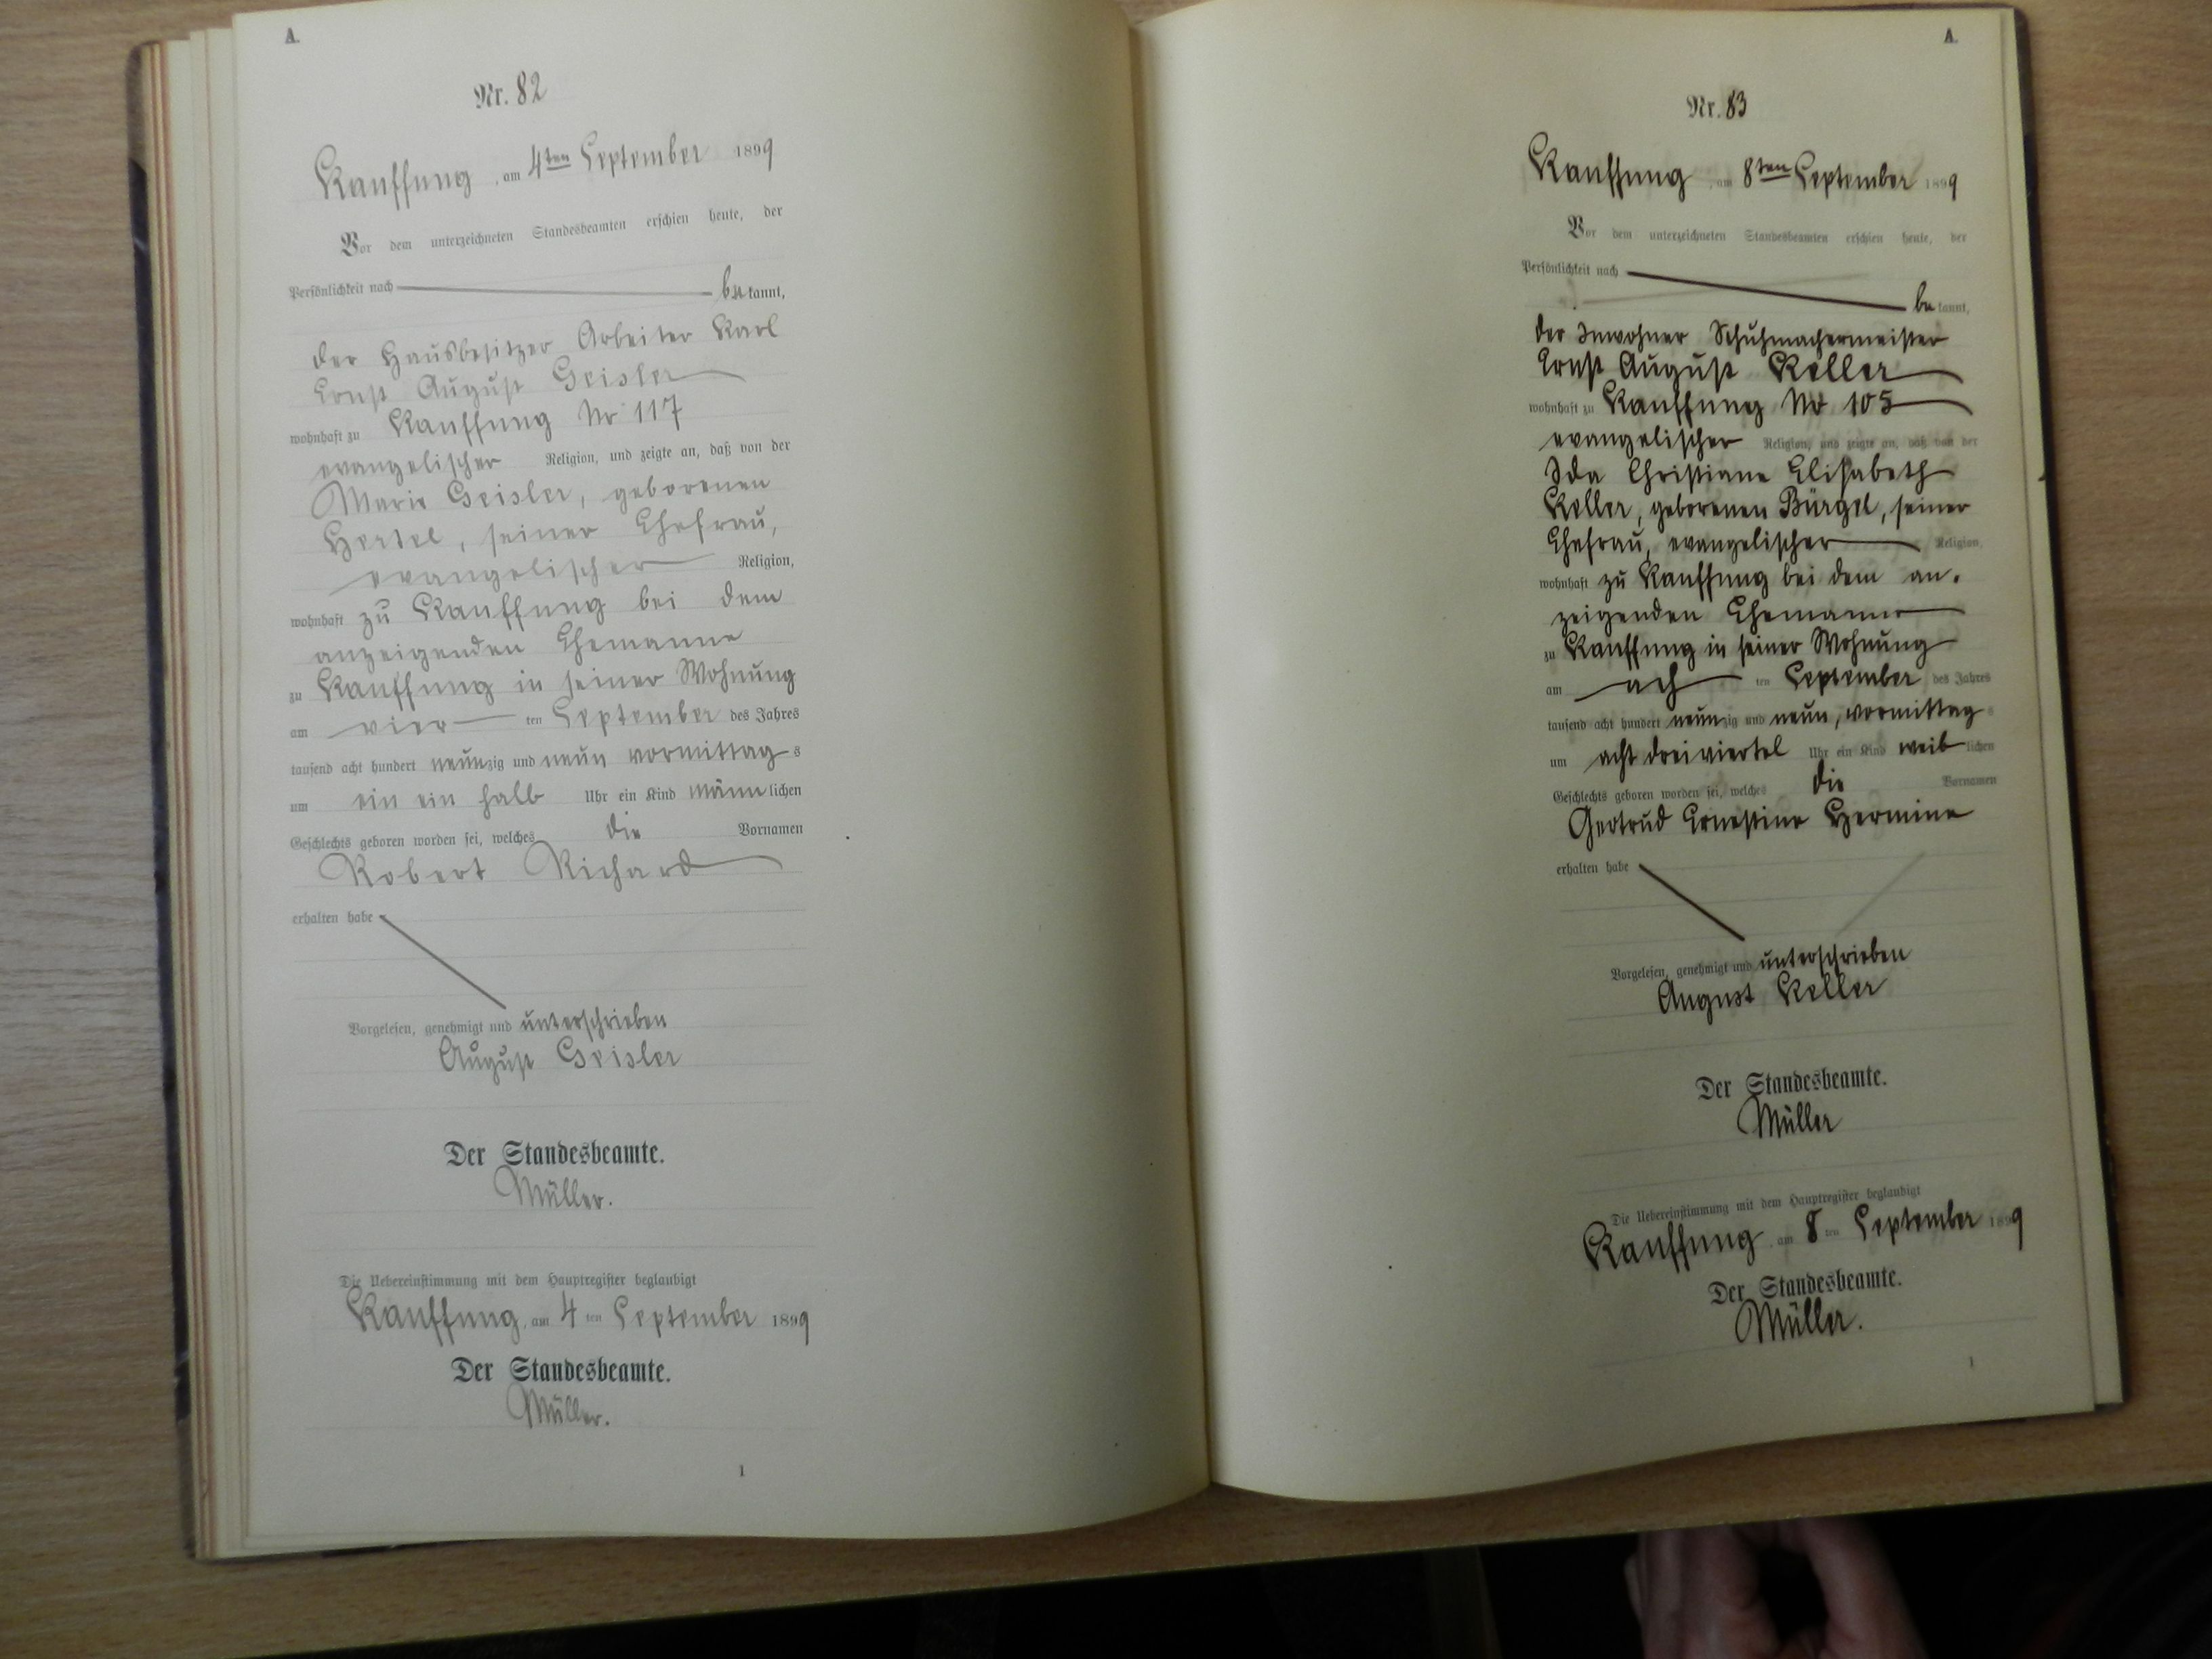 A.
Nr. 82
Kauffung, am 4ten September 1899
Vor dem unterzeichneten Standesbeamten erschien heute, der
Persönlichkeit nach bekannt,
der Hausbesitzer Arbeiter Karl
Ernst August Geisler
wohnhaft zu Kauffung Nr 117
evangelischer Religion, und zeigte an, daß von der
Marie Geisler, geborenen
Hertel, seiner Ehefrau,
evangelischer Religion,
wohnhaft zu Kauffung bei dem
anzeigenden Ehemanne
zu Kauffung in seiner Wohnung
am vierten September des Jahres
tausend acht hundert neunzig und neun vormittags
um ein ein halb Uhr ein Kind männlichen
Geschlechts geboren worden sei, welches die Vornamen
Robert Richard
erhalten habe
Vorgelesen, genehmigt und unterschrieben
August Geisler
Der Standesbeamte.
Müller.
Die Uebereinstimmung mit dem Hauptregister beglaubigt
Kauffung, am 4 ten September 1899
Der Standesbeamte.
Müller.
1
A.
Nr. 83
Kauffung, am 8ten September 1899
Vor dem unterzeichneten Standesbeamten erschien heute, der
Persönlichkeit nach
bekannt,
der Inwohner Schuhmachermeister
Ernst August Keller
wohnhaft zu Kauffung Nr 105
evangelischer Religion, und zeigte an, daß von der
Ida Christiane Elisabeth
Keller, geborenen Bürgel, seiner
Ehefrau, evangelischer Religion,
wohnhaft zu Kauffung bei dem an-
zeigenden Ehemanne
zu Kauffung in seiner Wohnung
am ach ten September des Jahres
tausend acht hundert neunzig und neun, vormittags
um acht dreiviertel Uhr ein Kind weiblichen
Geschlechts geboren worden sei, welches die Vornamen
Gertrud Ernestine Hermine
erhalten habe
Vorgelesen, genehmigt und unterschrieben
August Keller
Der Standesbeamte.
Müller
Die Uebereinstimmung mit dem Hauptregister beglaubigt
Kauffung, am 8 ten September 1899
Der Standesbeamte.
Müller.
1